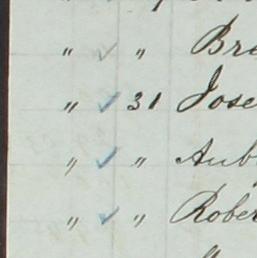 " ✓ " Bre
" ✓ 31 Jose
" ✓ " Aub
" ✓ " Rober
"